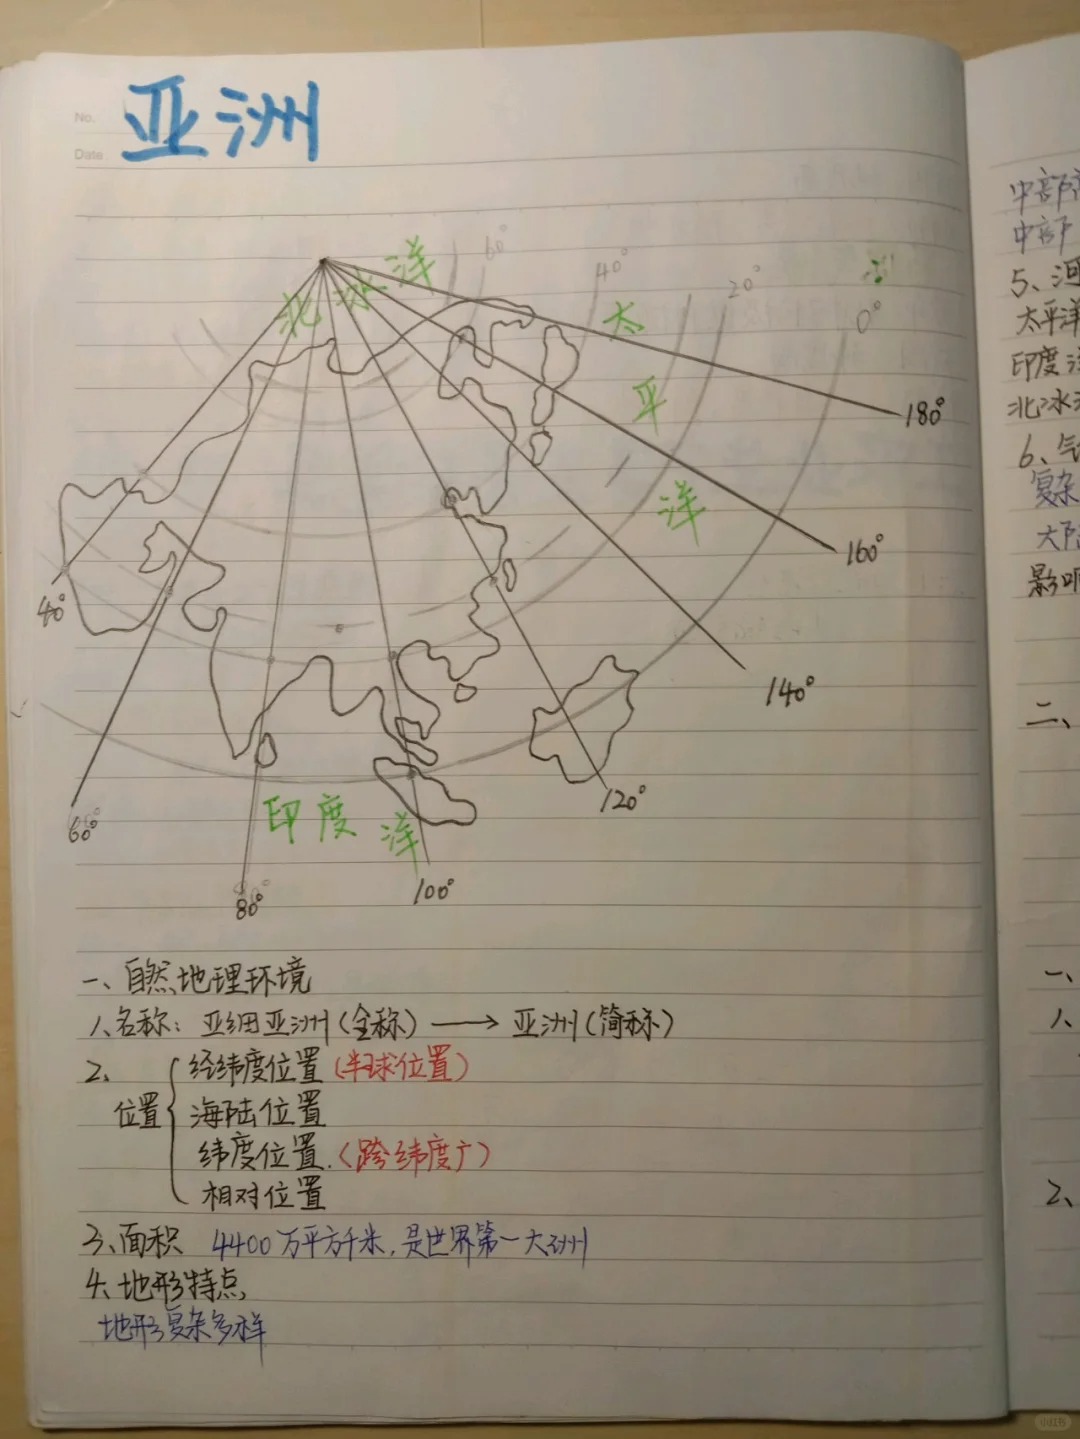 No.
Date
亚洲
北冰洋
60°
40°
20°
0°
太
平
洋
180°
160°
40°
140°
120°
印度洋
60°
80°
100°
一、自然地理环境
1、名称：亚细亚洲(全称)→亚洲(简称)
2、
位置
经纬度位置(半球位置)
海陆位置
纬度位置.(跨纬度广)
相对位置
3、面积 4400万平方千米,是世界第一大洲
4、地形特点
地形复杂多样
中部
中部
5、河
太平洋
印度洋
北冰洋
6、气
复杂
大陆
影响
二、
一、
1、
2、